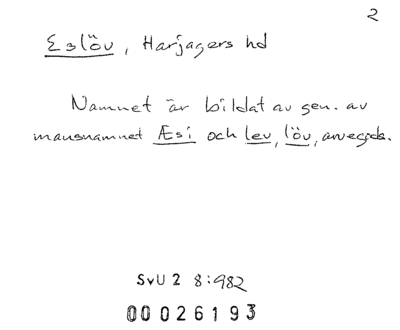 2
Eslöv, Harjagers hd
Namnet är bildat av gen. av
mansnamnet Æsi och lev, löv, arvegods.
SvU 2 8:982
00026193